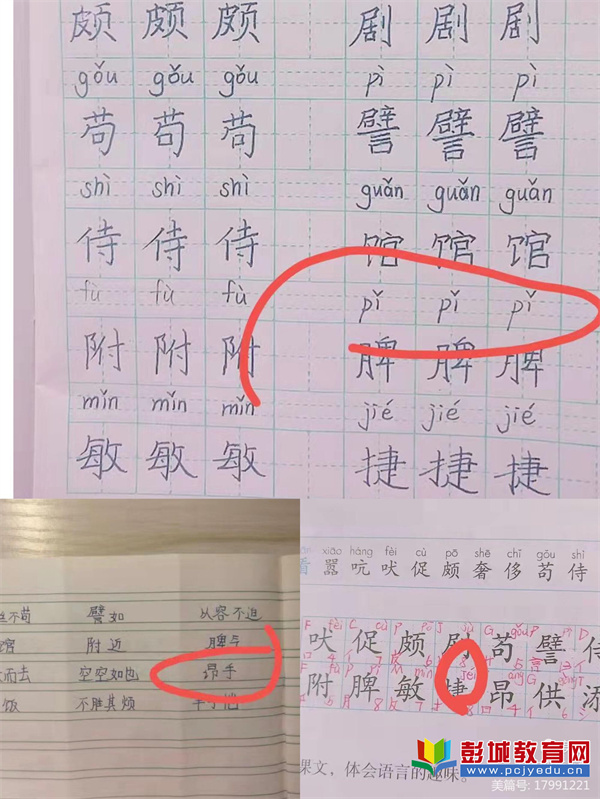 颇 颇 颇 剧 剧 剧
gǒu gǒu gǒu pì pì pì
苟 苟 苟 譬 譬 譬
shì shì shì guǎn guǎn guǎn
侍 侍 侍 馆 馆 馆
fù fù fù pǐ pǐ pǐ
附 附 附 脾 脾 脾
mǐn mǐn mǐn jié jié jié
敏 敏 敏 捷 捷 捷
不苟 譬如 从容不迫
馆 附近 脾气
而去 空空如也 昂手
饭 不胜其烦
xiāo háng fèi cù pō shē chǐ gǒu shì
嚣 吭 吠 促 颇 奢 侈 苟 侍
吠 促 颇 剧 苟 譬 侍
附 脾 敏 捷 昂 供 添
课文，体会语言的趣味。
彭城教育网
www.pcjyedu.cn
美篇号: 17991221